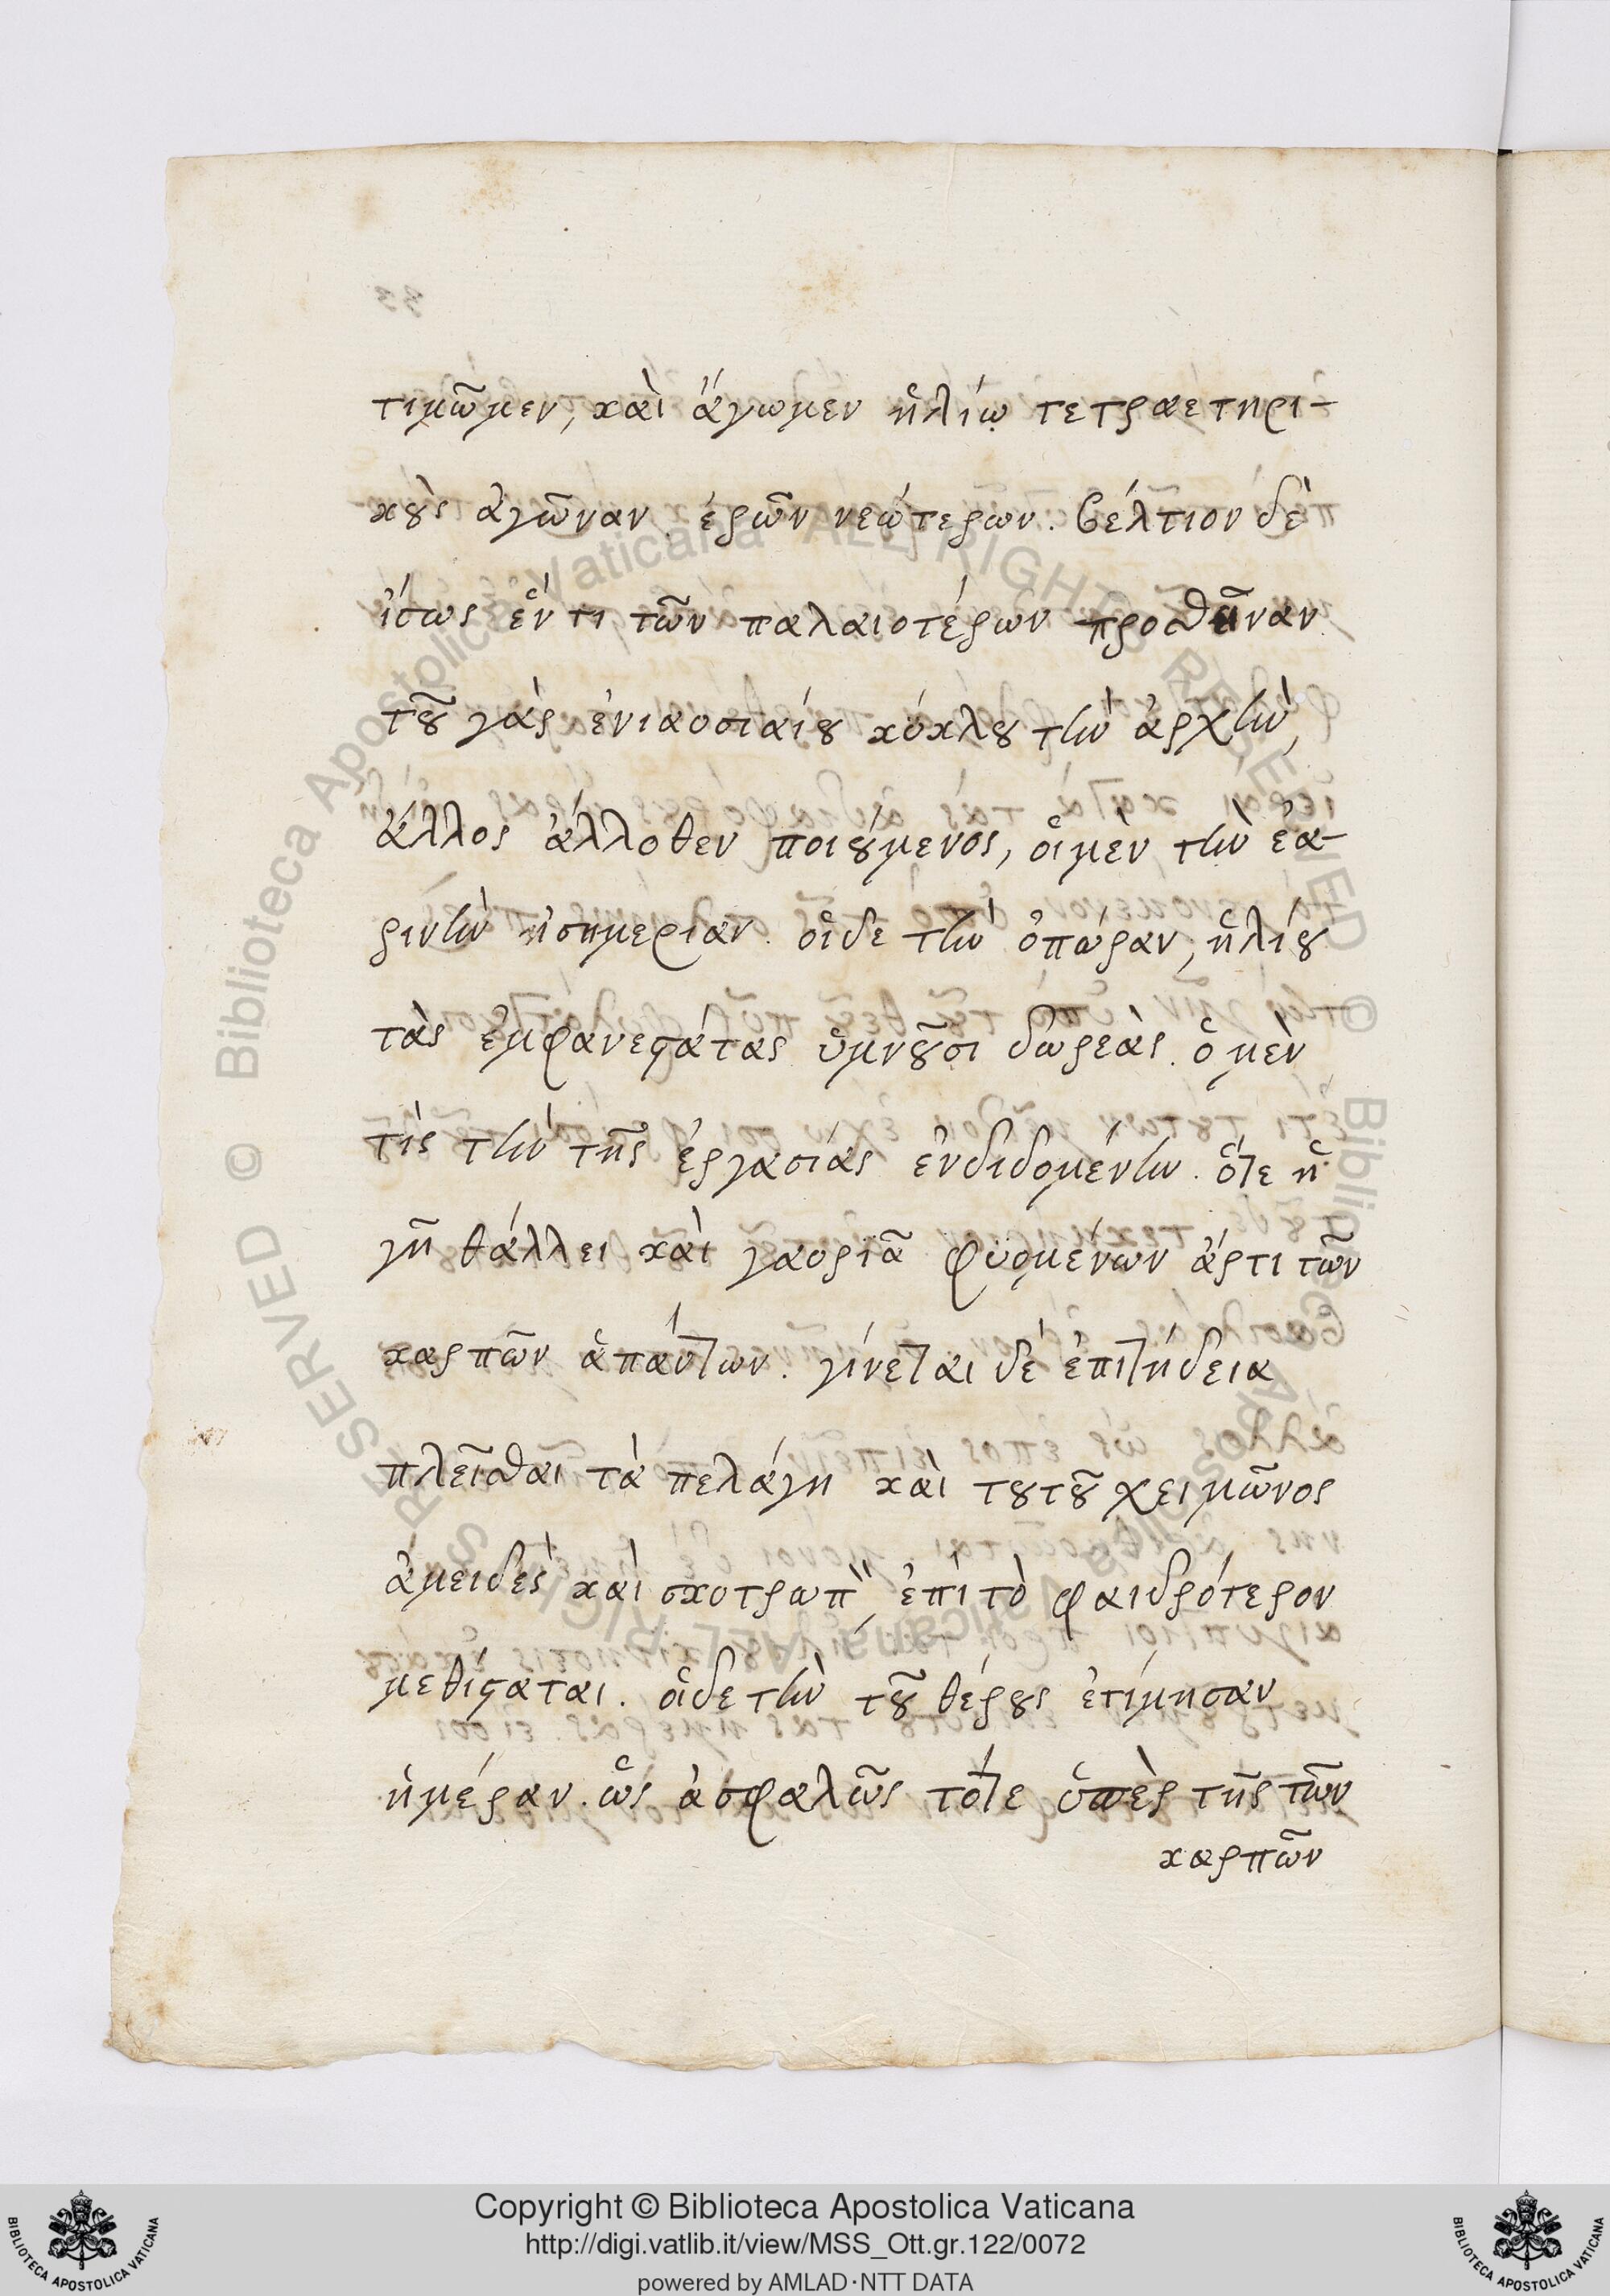 τιμῶμεν, καὶ ἄγωμεν ἡλίῳ τετραετηρι-
κοὺς ἀγῶναν ἐρῶν νεώτερων. βέλτιον δὲ
ἴσως ἕν τι τῶν παλαιοτέρων προσθῆναν
τοῦ γὰρ ἐνιαυσιαίου κύκλου τὴν ἀρχὴν,
ἄλλος ἄλλοθεν ποιούμενος, οἱ μὲν τὴν ἐα-
ρινὴν ἰσημεριαν. οἱ δε τὴν ὀπώραν, ἡλίου
τὰς ἐμφανεστάτας ὑμνοῦσι δωρεὰς. ὁ μὲν
τὶς τὴν τῆς ἐργασίας ἐνδιδομένην. ὅτε ἡ
γῆ θάλλει καὶ γαυριᾶ φϋομένων ἄρτι τῶν
καρπῶν ἁπάντων. γίνεται δὲ ἐπιτήδεια
πλεῖσθαι τὰ πελάγη καὶ τοῦ τοῦ χειμῶνος
ἀμειδὲς καὶ σκυτρωπ ̏, ἐπὶ τὸ φαιδρότερον
μεθίσταται. οἱ δε τὴν τοῦ θέρους ἐτίμησαν
ἡμέραν. ὡς ἀσφαλῶς τότε ὑπὲρ τῆς τῶν
καρπῶν
33
Copyright © Biblioteca Apostolica Vaticana
http://digi.vatlib.it/view/MSS_Ott.gr.122/0072
powered by AMLAD·NTT DATA
BIBLIOTECA APOSTOLICA VATICANA
BIBLIOTECA APOSTOLICA VATICANA
© Biblioteca Apostolica Vaticana ALL RIGHTS RESERVED
© Biblioteca Apostolica Vaticana ALL RIGHTS RESERVED